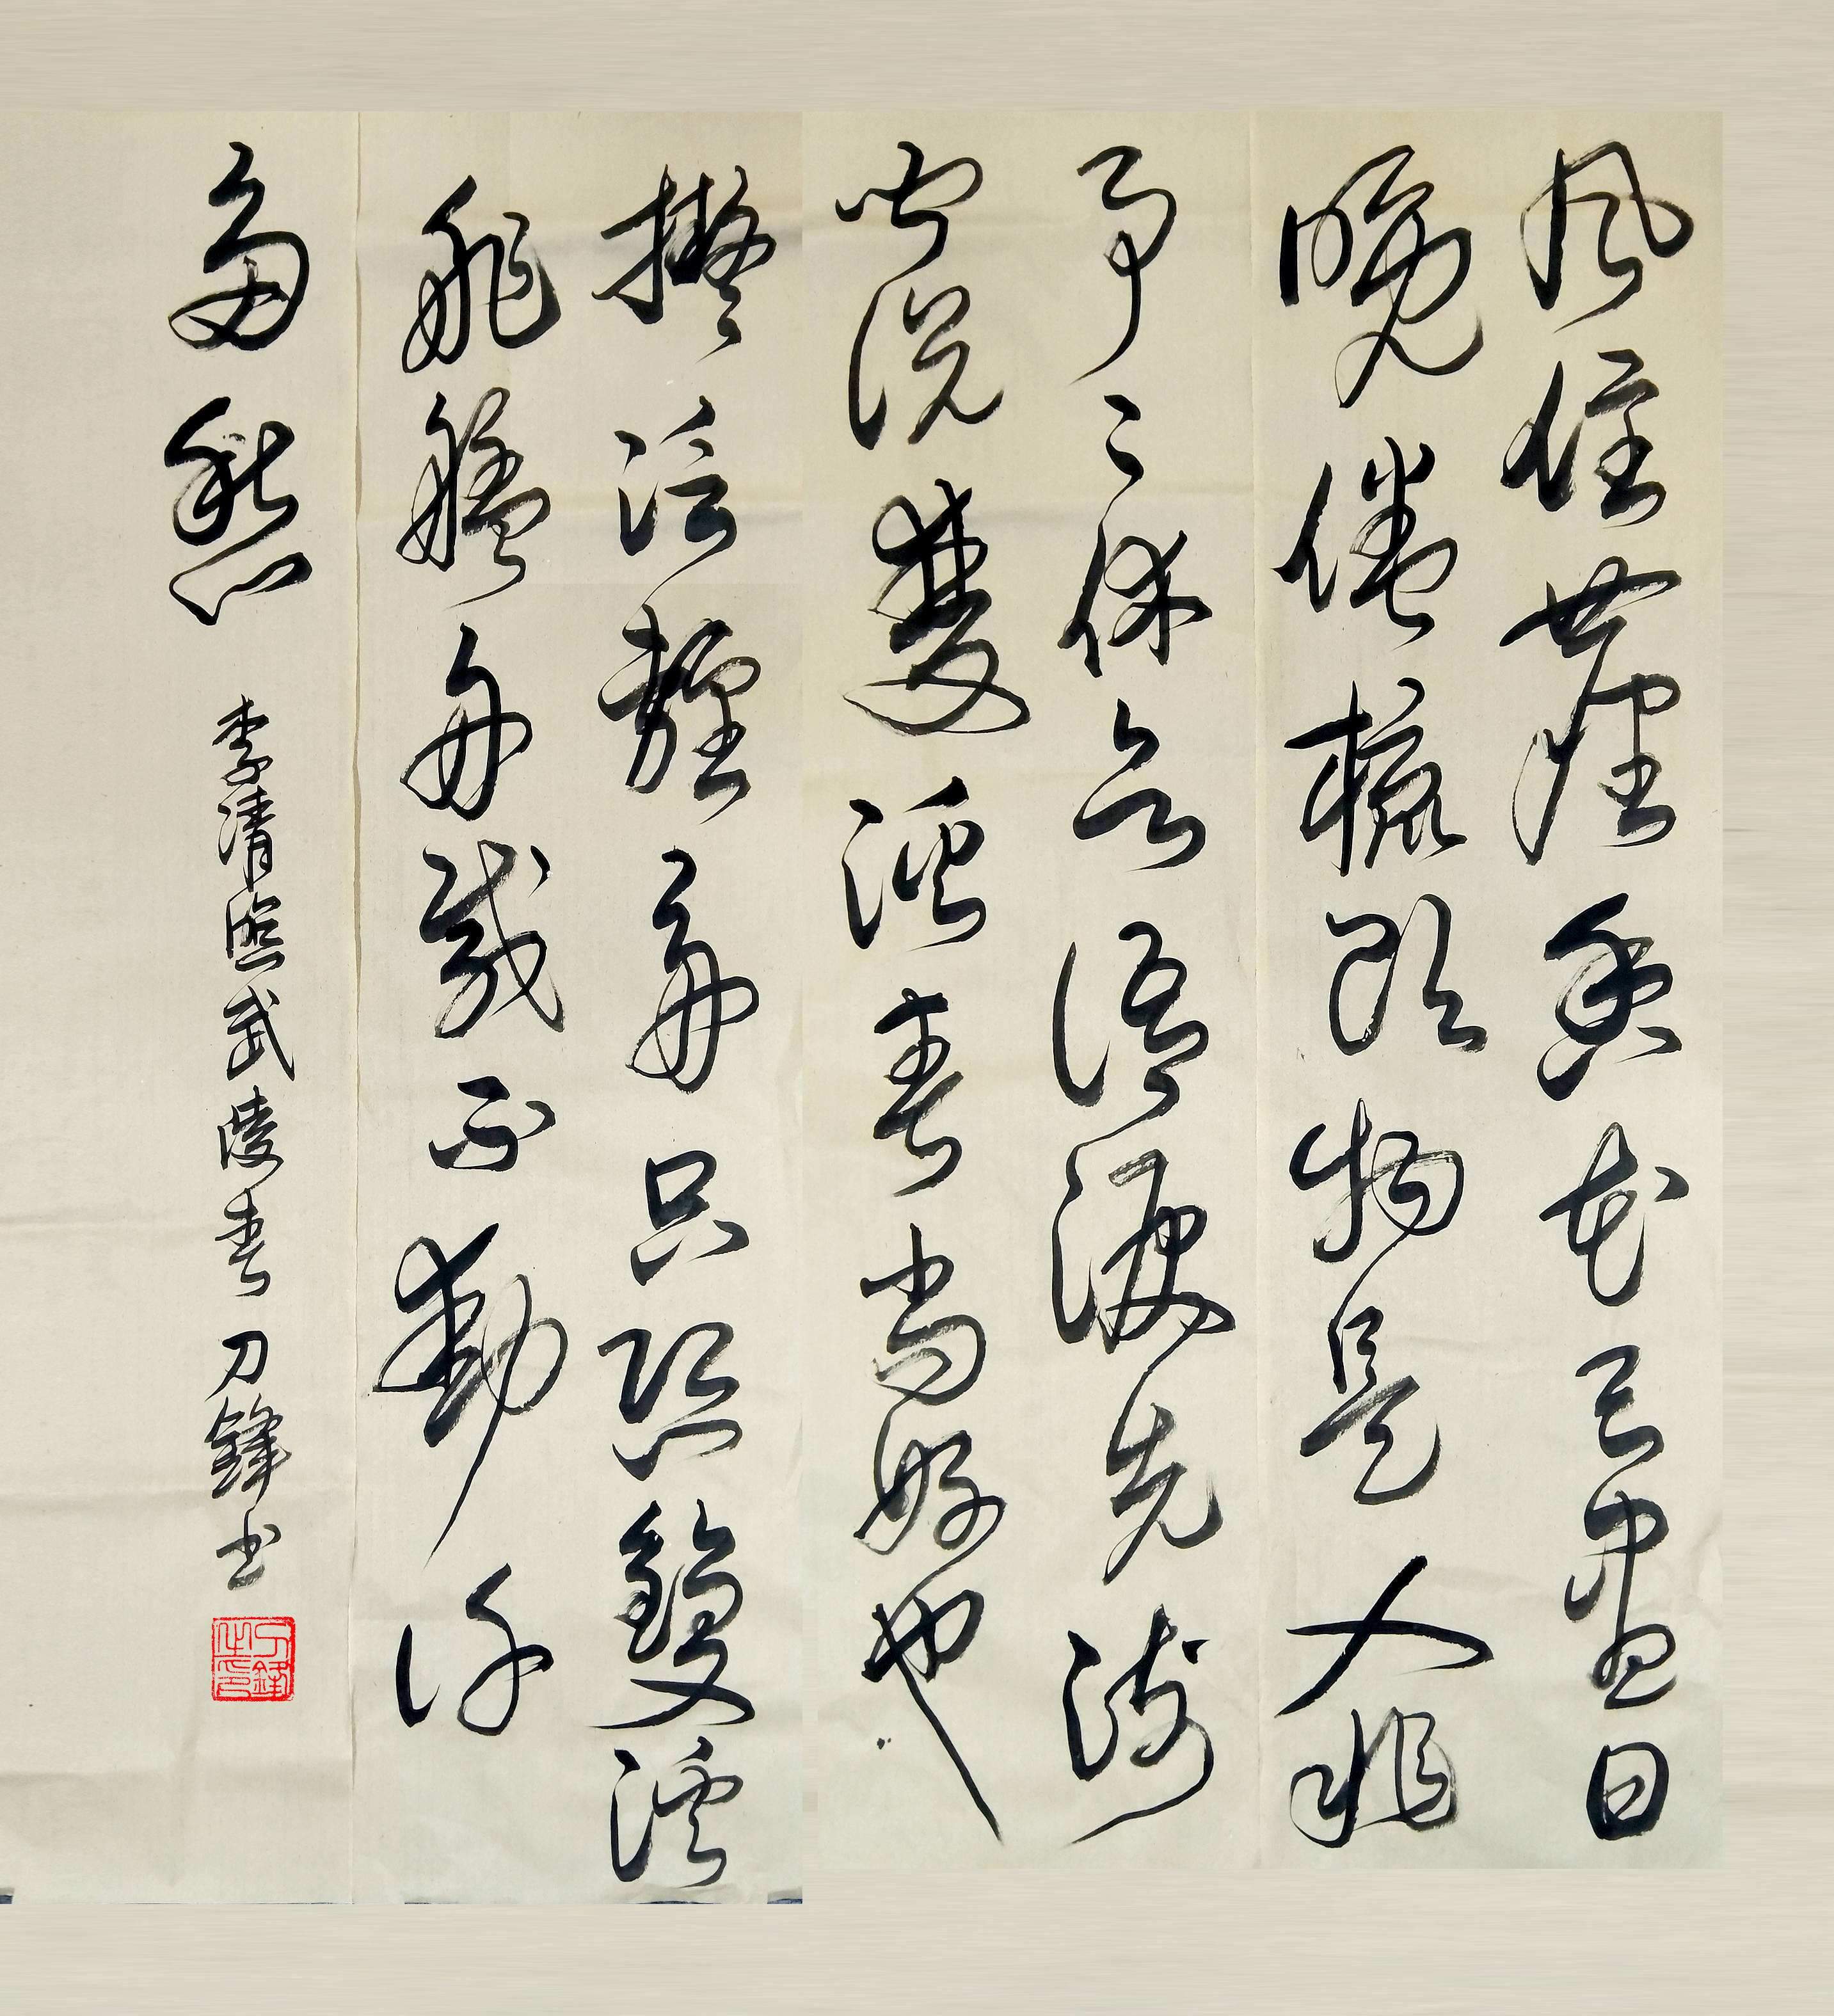 風住塵香花已盡日
晚倦梳頭物是人非
事〻休欲語淚先流
聞說雙溪春尚好也
擬泛輕舟只恐雙溪
舴艋舟載不動許
多愁
李清照武陵春 刀鋒书
刀鋒之印